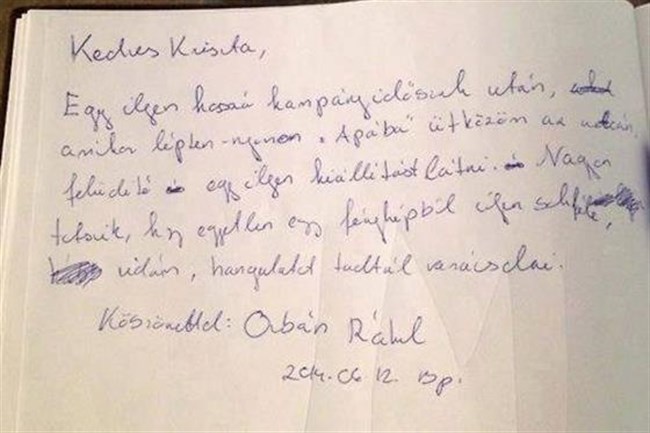 Kedves Kriszta,
Egy ilyen hosszú kampányidőszak után,
amikor lépten-nyomon „Apába" ütközöm az utcán,
felüdítő egy ilyen kiállítást látni. Nagyon
tetszik, hogy egyetlen egy fényképből ilyen sokféle,
vidám, hangulatot tudtál varázsolni.
Köszönettel: Orbán Ráhel
2014. 06 12. Bp.